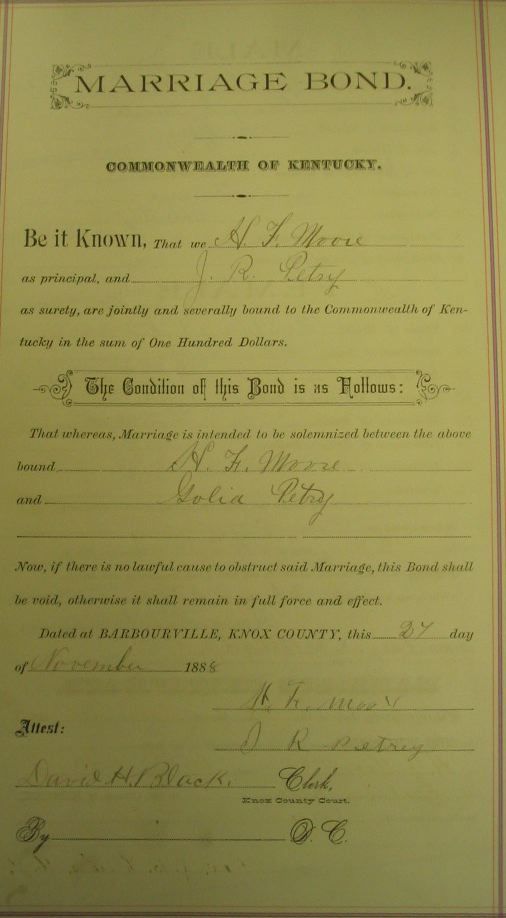 MARRIAGE BOND.
COMMONWEALTH OF KENTUCKY.
Be it Known, That we H. F. Moore
as principal, and J. R. Petry
as surety, are jointly and severally bound to the Commonwealth of Ken-
tucky in the sum of One Hundred Dollars.
The Condition of this Bond is as Follows:
That whereas, Marriage is intended to be solemnized between the above
bound H. F. Moore
and Golia Petry
Now, if there is no lawful cause to obstruct said Marriage, this Bond shall
be void, otherwise it shall remain in full force and effect.
Dated at BARBOURVILLE, KNOX COUNTY, this 27 day
of November 1888
H. F. Moor
Attest:
J R Petrey
David H. Black. Clerk,
Knox County Court.
By D. C.